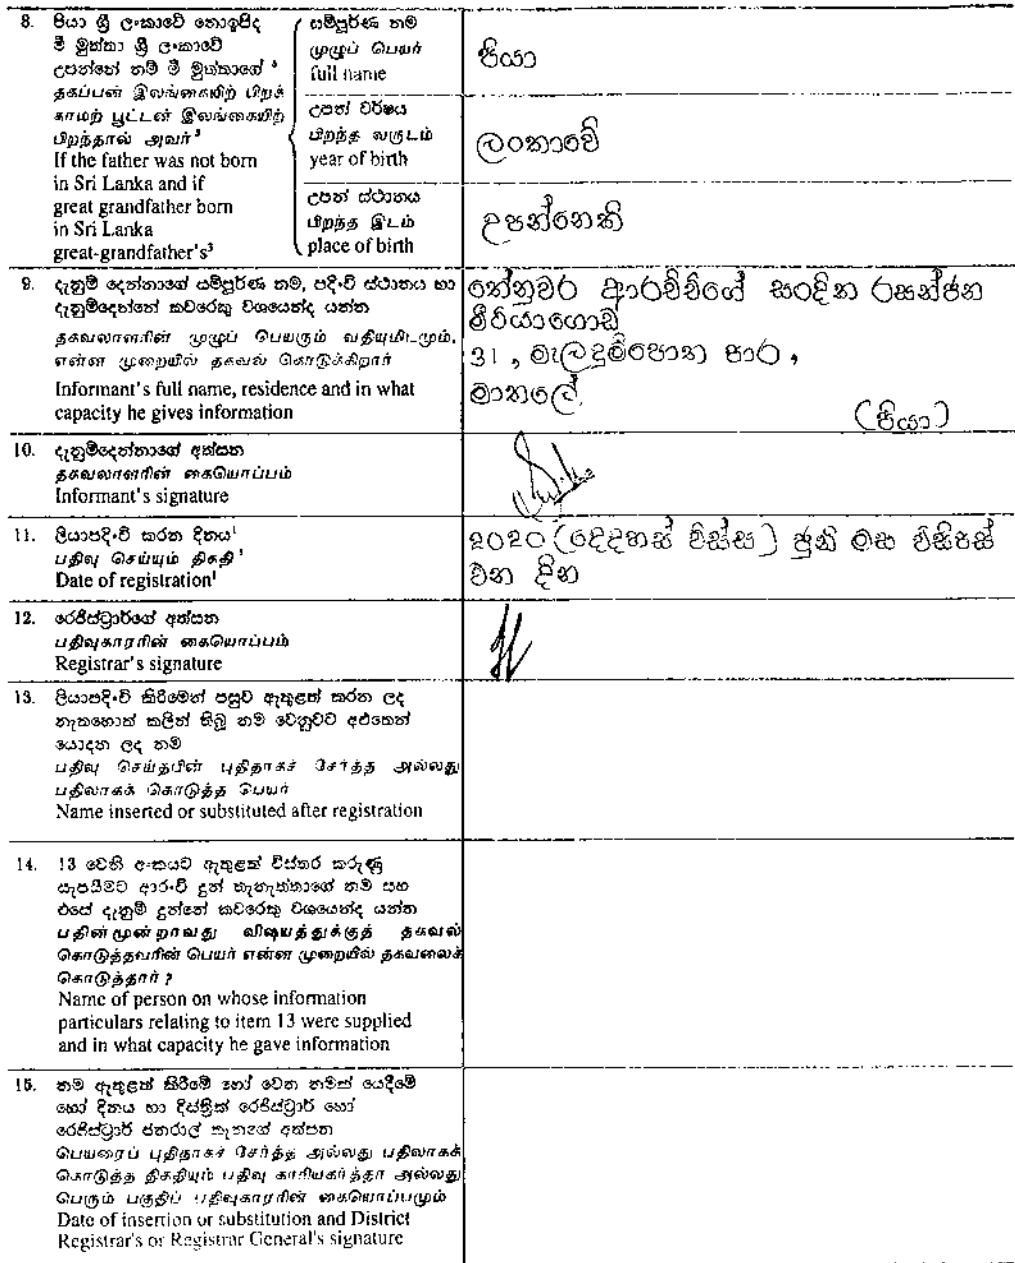 8. පියා ශ්‍රී ලංකාවේ නොඉපිද
මී මුත්තා ශ්‍රී ලංකාවේ
උපන්නේ නම් මී මුත්තාගේ ³
தகப்பன் இலங்கையிற் பிறக்
காமற் பூட்டன் இலங்கையிற்
பிறந்தால் அவர் ³
If the father was not born
in Sri Lanka and if
great grandfather born
in Sri Lanka
great-grandfather's³
සම්පූර්ණ නම
முழுப் பெயர்
full name
පියා
උපන් වර්ෂය
பிறந்த வருடம்
year of birth
ලංකාවේ
උපන් ස්ථානය
பிறந்த இடம்
place of birth
උපන්නෙකි
9. දැනුම් දෙන්නාගේ සම්පූර්ණ නම, පදිංචි ස්ථානය හා
දැනුම්දෙන්නේ කවරෙකු වශයෙන්ද යන්න
தகவலாளரின் முழுப் பெயரும் வதியுமிடமும்,
என்ன முறையில் தகவல் கொடுக்கிறார்
Informant's full name, residence and in what
capacity he gives information
තේනුවර ආරච්චිගේ සංදින රසන්ජන
මීරියාගොඩ
31, මැලදුම්පොත පාර,
මාතලේ.
(පියා)
10. දැනුම්දෙන්නාගේ අත්සන
தகவலாளரின் கையொப்பம்
Informant's signature
11. ලියාපදිංචි කරන දිනය¹
பதிவு செய்யும் திகதி ¹
Date of registration¹
2020 (දෙදහස් විස්ස) ජුනි මස විසිපස්
වන දින
12. රෙජිස්ට්‍රාර්ගේ අත්සන
பதிவுகாரரின் கையொப்பம்
Registrar's signature
13. ලියාපදිංචි කිරීමෙන් පසුව ඇතුළත් කරන ලද
නැතහොත් කලින් තිබූ නම වෙනුවට අළුතෙන්
යොදන ලද නම
பதிவு செய்தபின் புதிதாகச் சேர்த்த அல்லது
பதிலாகக் கொடுத்த பெயர்
Name inserted or substituted after registration
14. 13 වෙනි අංකයට ඇතුළත් විස්තර කරුණු
සැපයීමට ආරංචි දුන් තැනැත්තාගේ නම සහ
එසේ දැනුම් දුන්නේ කවරෙකු වශයෙන්ද යන්න
பதின்மூன்றாவது விஷயத்துக்குத் தகவல்
கொடுத்தவரின் பெயர் என்ன முறையில் தகவலைக்
கொடுத்தார் ?
Name of person on whose information
particulars relating to item 13 were supplied
and in what capacity he gave information
15. නම ඇතුළත් කිරීමේ හෝ වෙන නමක් යෙදීමේ
හෝ දිනය හා දිස්ත්‍රික් රෙජිස්ට්‍රාර් හෝ
රෙජිස්ට්‍රාර් ජනරාල් තැනගේ අත්සන
பெயரைப் புதிதாகச் சேர்த்த அல்லது பதிலாகக்
கொடுத்த திகதியும் பதிவு காரியகர்த்தா அல்லது
பெரும் பகுதிப் பதிவுகாரரின் கையொப்பமும்
Date of insertion or substitution and District
Registrar's or Registrar General's signature